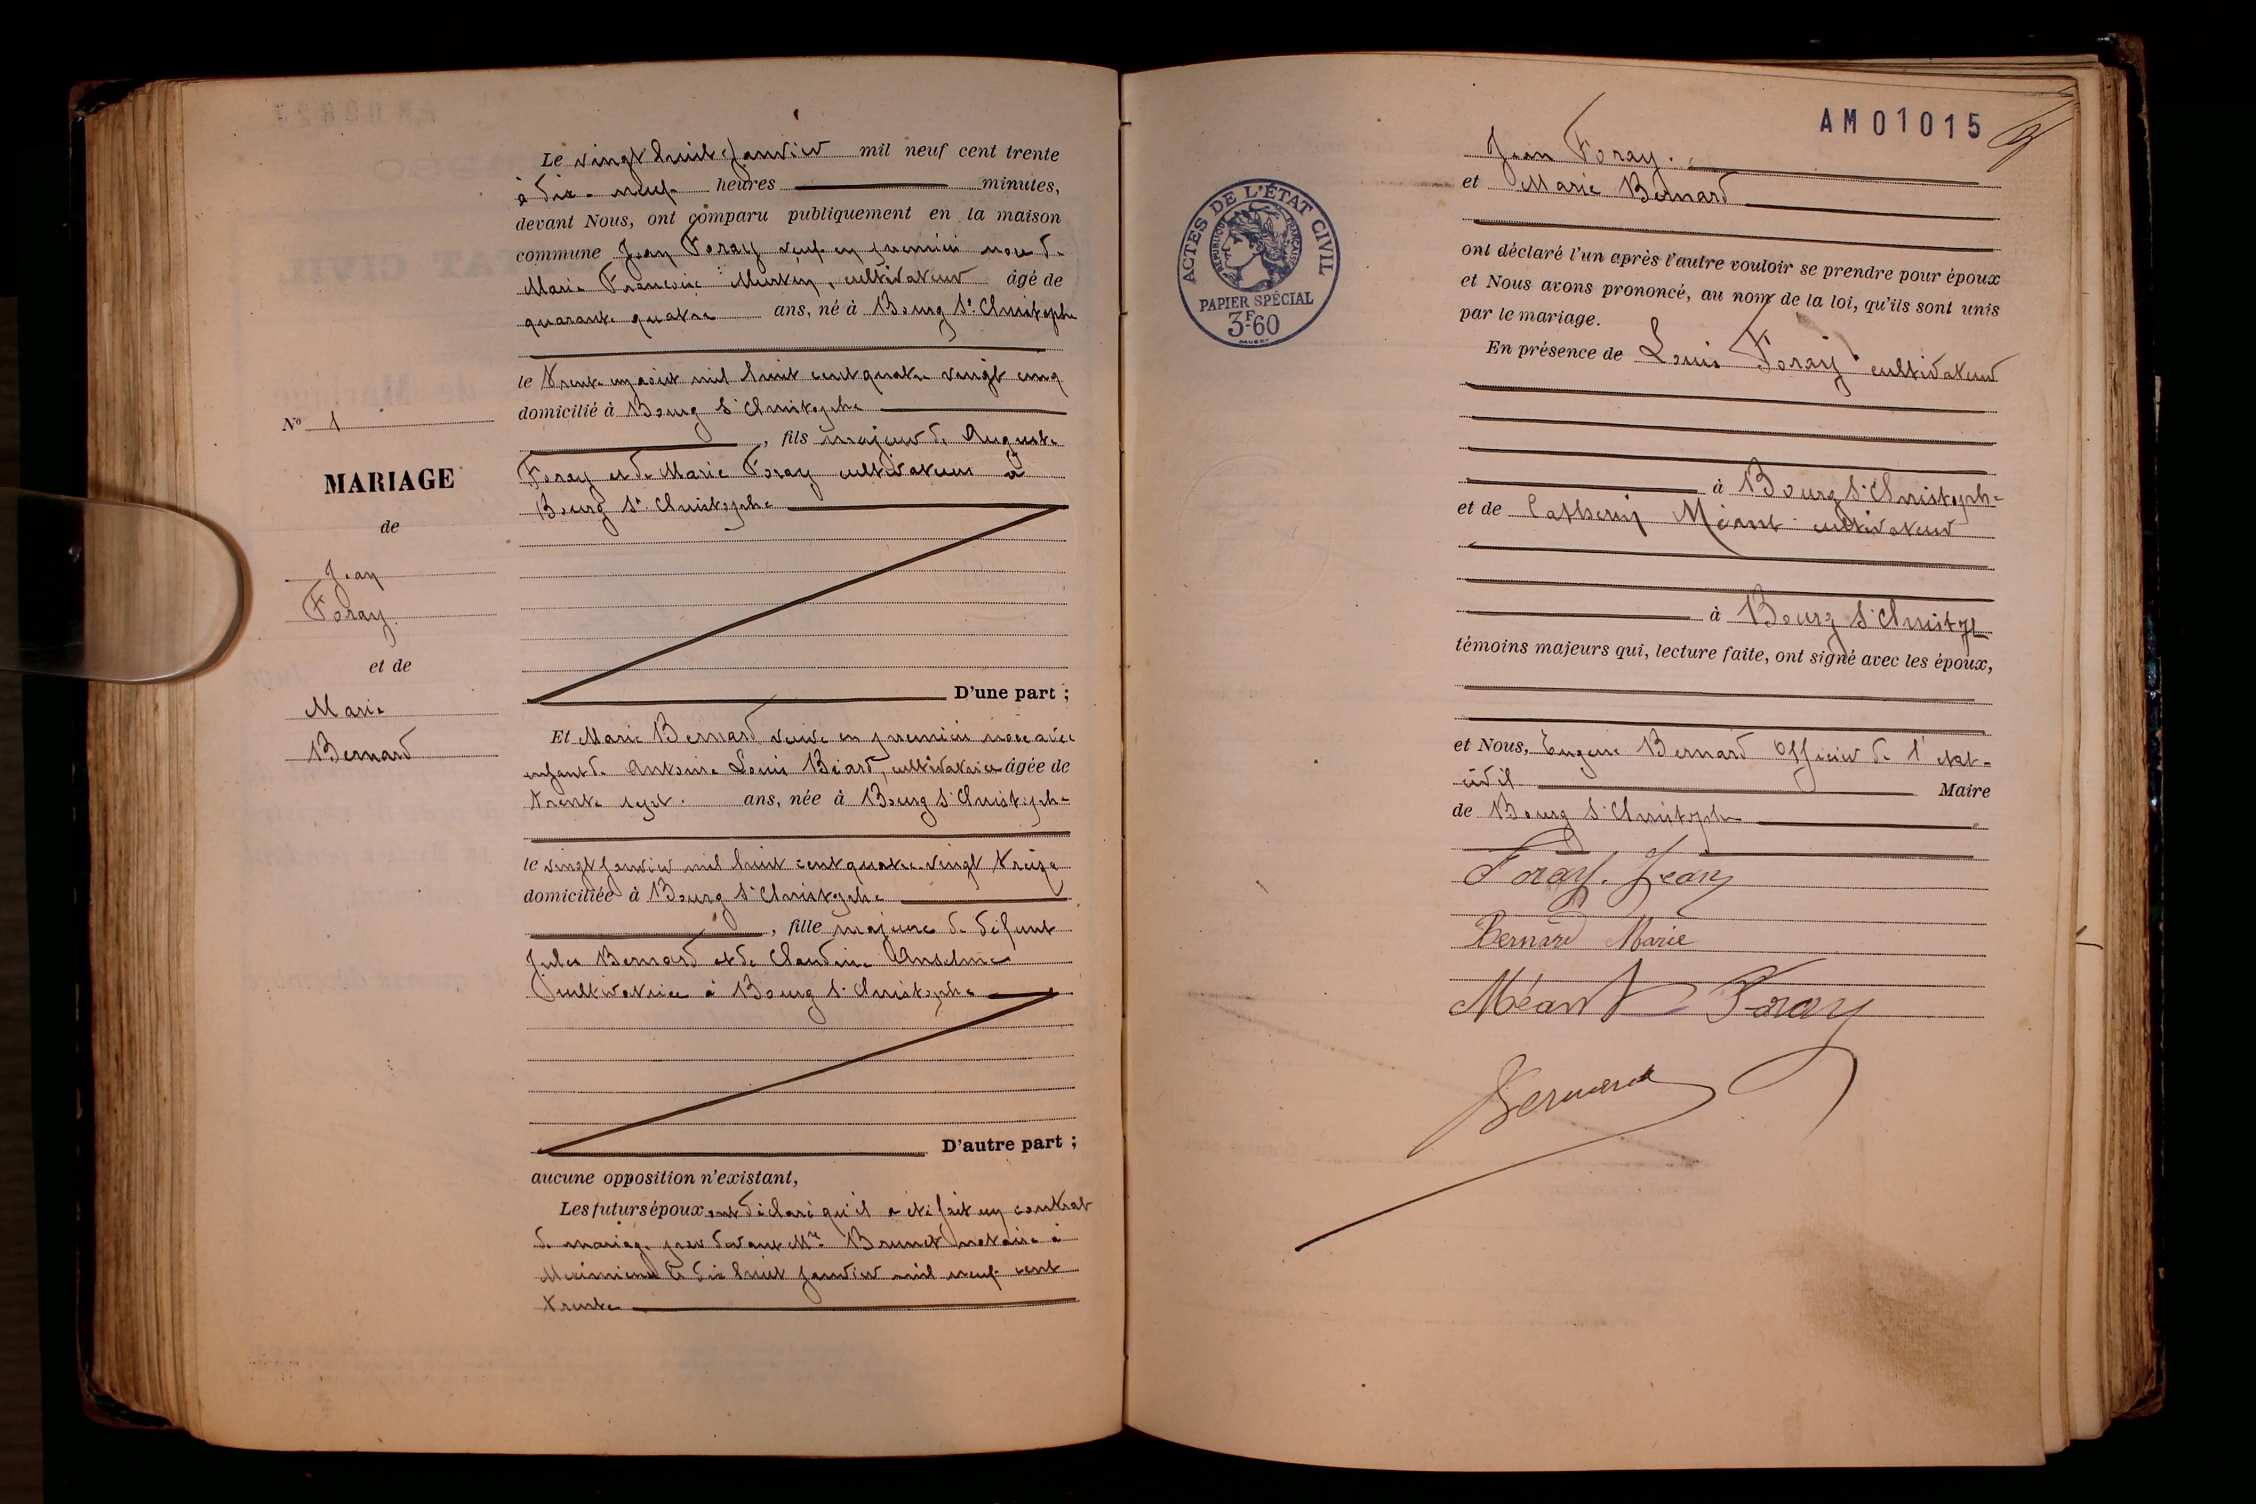 Le vingt huit Janvier mil neuf cent trente
à dix-neuf heures minutes,
devant Nous, ont comparu publiquement en la maison
commune Jean Foray veuf en premier noce de
Marie Françoise cultivateur âgé de
quarante quatre ans, né à Bourg St Christophe
le trente un août mil huit cent quatre vingt cinq
domicilié à Bourg St Christophe
, fils majeur de Auguste
Foray et de Marie Foray cultivateurs à
Bourg St Christophe
D'une part ;
Nº 1
MARIAGE
de
Jean
Foray.
et de
Marie
Bernard
Et Marie Bernard veuve en premier noce avec
enfant de Antoine Louis Biard, cultivatrice âgée de
trente sept. ans, née à Bourg St Christophe
le vingt Janvier mil huit cent quatre-vingt treize
domiciliée à Bourg St Christophe
, fille majeure de défunt
Jules Bernard et de Claudine Anselme
cultivatrice à Bourg St Christophe
D'autre part ;
aucune opposition n'existant,
Les futurs époux ont déclaré qu'il a été fait un contrat
de mariage par devant Me Brunet notaire à
Meximieux le dix huit janvier mil neuf cent
trente
AM01015
Jean Foray.
et Marie Bernard
ACTES DE L'ÉTAT CIVIL
RÉPUBLIQUE FRANÇAISE
PAPIER SPÉCIAL
3F60
ont déclaré l'un après l'autre vouloir se prendre pour époux
et Nous avons prononcé, au nom de la loi, qu'ils sont unis
par le mariage.
En présence de Louis Foray cultivateur
à Bourg St Christophe
et de Catherin Méant cultivateur
à Bourg St Christoph
témoins majeurs qui, lecture faite, ont signé avec les époux,
et Nous, Eugene Bernard Officier de l'etat-
civil Maire
de Bourg St Christoph
Foray. Jean
Bernard Marie
Méant Foray
Bernard